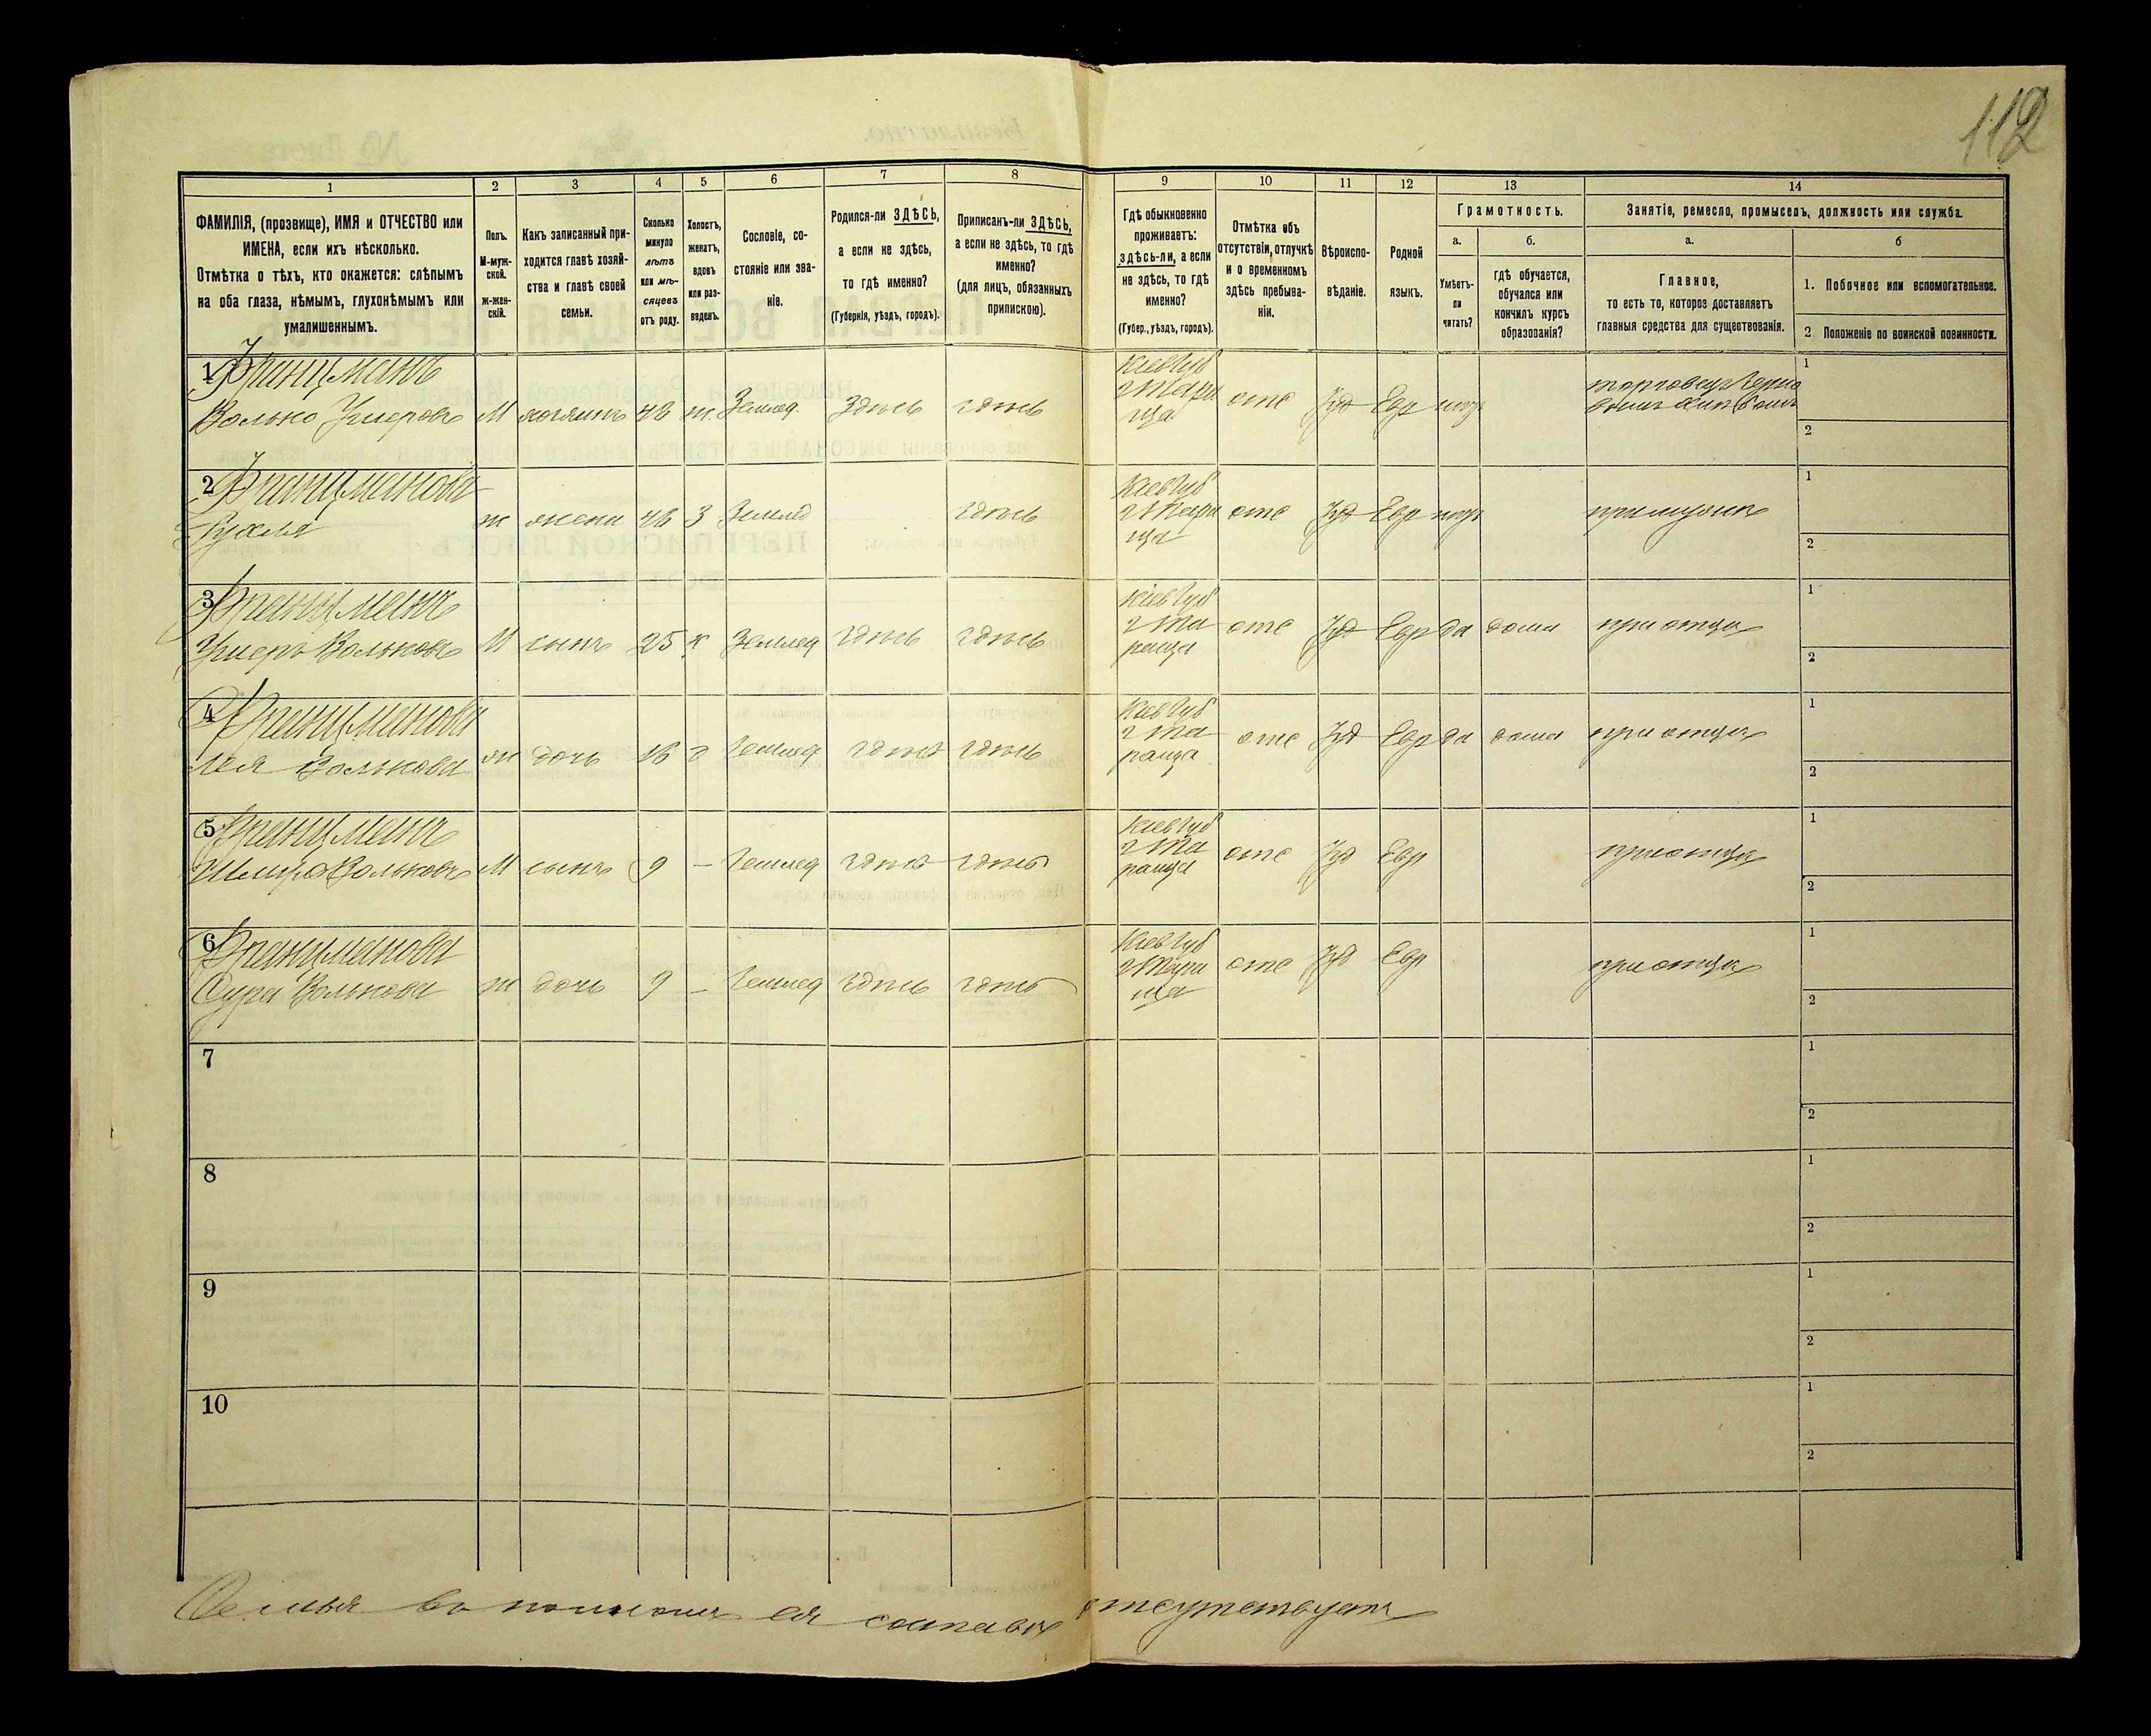 112
1 2 3 4 5 6 7 8 9 10 11 12 13 14
ФАМИЛІЯ, (прозвище), ИМЯ и ОТЧЕСТВО или
ИМЕНА, если ихъ нѣсколько.
Отмѣтка о тѣхъ, кто окажется: слѣпымъ
на оба глаза, нѣмымъ, глухонѣмымъ или
умалишеннымъ.
Полъ.
М-муж-
ской.
ж-жен-
скій.
Какъ записанный при-
ходится главѣ хозяй-
ства и главѣ своей
семьи.
Сколько
минуло
лѣтъ
или мѣ-
сяцевъ
отъ роду.
Холостъ,
женатъ,
вдовъ
или раз-
веденъ.
Сословіе, со-
стояніе или зва-
ніе.
Родился-ли ЗДѢСЬ,
а если не здѣсь,
то гдѣ именно?
(Губернія, уѣздъ, городъ).
Приписанъ-ли ЗДѢСЬ,
а если не здѣсь, то гдѣ
именно?
(для лицъ, обязанныхъ
припискою).
Гдѣ обыкновенно
проживаетъ:
здѣсь-ли, а если
не здѣсь, то гдѣ
именно?
(Губер., уѣздъ, городъ).
Отмѣтка объ
отсутствіи, отлучкѣ
и о временномъ
здѣсь пребыва-
ніи.
Вѣроиспо-
вѣданіе.
Родной
языкъ.
Грамотность.
а.
Умѣетъ-
ли
читать?
б.
гдѣ обучается,
обучался или
кончилъ курсъ
образованія?
Занятіе, ремесло, промыселъ, должность или служба.
а.
Главное,
то есть то, которое доставляетъ
главныя средства для существованія.
б
1. Побочное или вспомогательное.
2 Положеніе по воинской повинности.
1 Францманъ
М 48 ж. Землед. Здѣсь здѣсь Кіев Губ г Тара ща отс Іуд Евр
1
2
2 Францманова
ж жена 48 З Землед здѣсь Кіев Губ г Тара ща отс Іуд Евр
1
2
3 Францманъ
М сынъ 25 х Землед здѣсь здѣсь Кіев Губ г Та раща отс Іуд Евр да дома при отцѣ
1
2
4 Францманова
Лея Волькова ж дочь 18 Землед здѣсь здѣсь Кіев Губ г Та раща отс Іуд Евр да дома при отцѣ
1
2
5 Францманъ
М сынъ 9 – Землед здѣсь здѣсь Кіев Губ г Та раща отс Іуд Евр при отцѣ
1
2
6 Францманова
Сура Волькова ж дочь 9 – Землед здѣсь здѣсь Кіев Губ г Тара ща отс Іуд Евр при отцѣ
1
2
7
1
2
8
1
2
9
1
2
10
1
2
Семья въ полномъ ея составѣ отсутствуетъ